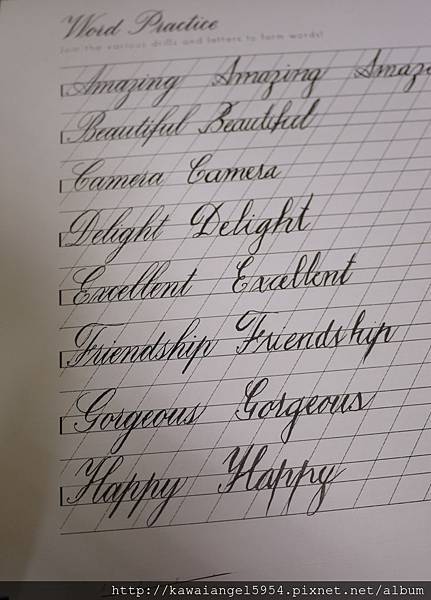 Word Practice
Join the various drills and letters to form words!
Amazing Amazing Amaz
Beautiful Beautiful
Camera Camera
Delight Delight
Excellent Excellent
Friendship Friendship
Gorgeous Gorgeous
Happy Happy
http://kawaiangel5954.pixnet.net/album